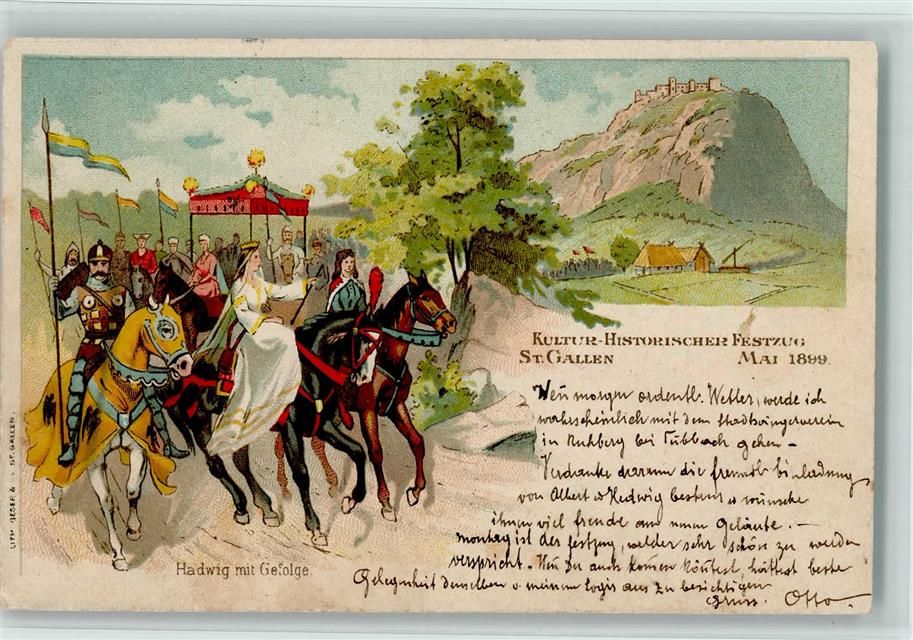 KULTUR-HISTORISCHER FESTZUG
ST. GALLEN MAI 1899.
Wen morgen ordentl. Wetter, werde ich
wahrscheinlich mit dem Stadtsängerverein
in Ruhberg bei Tübbach gehen –
Verdanke darum die freundl
von Albert & Hedwig bestens & wünsche
ihnen viel freude am neuen Geläute. –
Montag ist der festzug, welcher sehr schön zu werden
verspricht. – Wen Du auch komen köntest, hättest beste
Gelegenheit denselben & meinem logis aus zu besichtigen
Gruss. Otto.
Hadwig mit Gefolge.
LITH. GESER & ST. GALLEN.